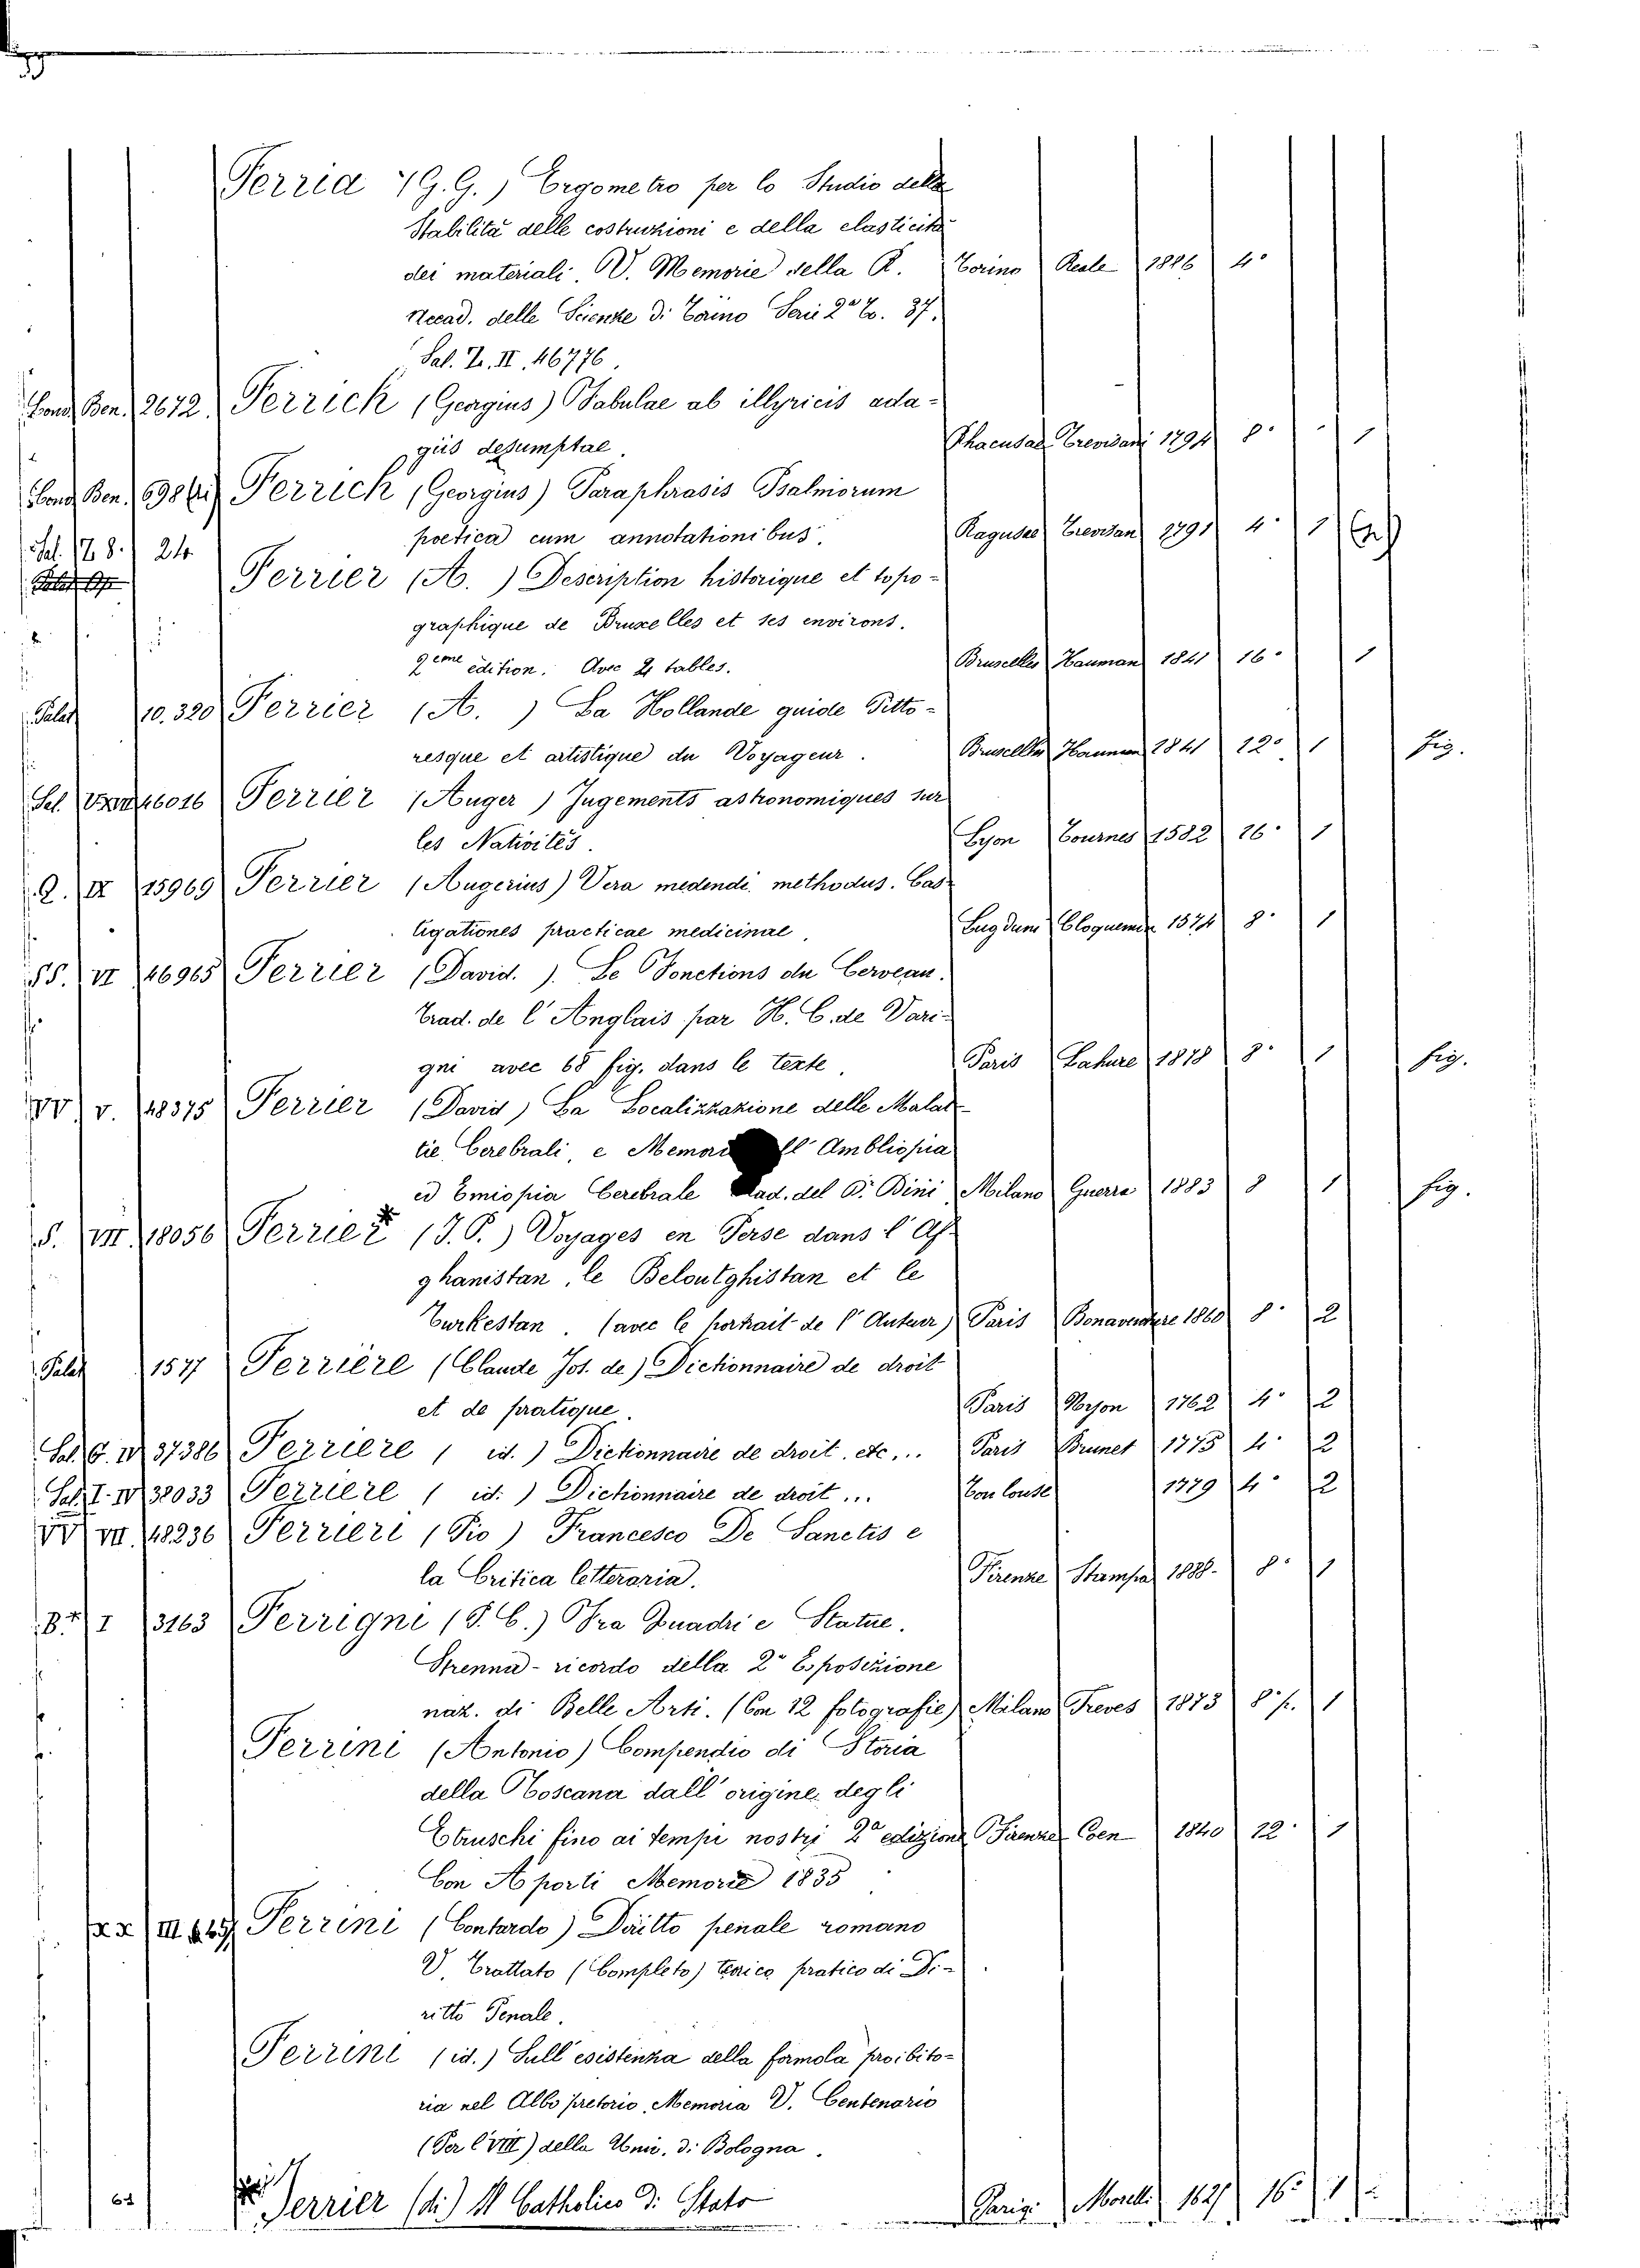 Ferria (G. G.) Ergometro per lo Studio della
Stabilità delle costruzioni e della elasticità
dei materiali. V. Memorie della R. Torino Reale 1886 4°
Accad. delle Scienze di Torino Serie 2ª To. 37.
Sal. Tr. II. 46776.
Fond. Ben. 2672 Ferrich (Georgius) Fabulae ab illyricis ada-
giis desumptae. Rhacusae Trevisani 1794 8° 1
Fond. Ben. 698 Ferrich (Georgius) Paraphrasis Psalmorum
poetica cum annotationibus. Ragusae Trevisan 1791 4° 1
Sal. 178. 24
Ferrier (A.) Description historique et topo-
graphique de Bruxelles et ses environs.
2eme edition. Avec 2 tables. Bruxelles Hauman 1841 16° 1
Palat 10.320 Ferrier (A.) La Hollande guide Pitto-
resque et artistique du Voyageur. Bruxelles Hauman 1841 12° 1 fig.
Sal. 46016 Ferrier (Auger) Jugements astronomiques sur
les Nativités. Lyon Tournes 1582 16° 1
Q. IX 15969 Ferrier (Augerius) Vera medendi methodus. Cas-
tigationes practicae medicinae. Lugdum Cloquemin 1574 8° 1
SS. VI 46965 Ferrier (David.) Le Fonctions du Cerveau.
Trad. de l'Anglais par H. C. de Vari-
gni avec 68 fig. dans le texte. Paris Lahure 1878 8° 1 fig.
VV V. 48375 Ferrier (David) La Localizzazione delle Malat-
tie Cerebrali, e Memori ll' Ambliopia
ed Emiopia Cerebrale Trad. del Dr. Bini Milano Guerra 1883 8 1 fig.
S. VII. 18056 Ferrier (J. P.) Voyages en Perse dans l'Af-
ghanistan, le Beloutghistan et le
Turkestan. (avec le portrait de l'Auteur) Paris Bonaventure 1860 8° 2
Palat 1577 Ferrière (Claude Jos. de) Dictionnaire de droit
et de pratique. Paris Noyon 1762 4° 2
Sal. G. IV 37386 Ferriere (id.) Dictionnaire de droit. etc... Paris Brunet 1775 4° 2
Sal. I. IV 38033 Ferriere (id.) Dictionnaire de droit... Toulouse 1779 4° 2
VV VII. 48236 Ferrieri (Pio) Francesco De Sanctis e
la Critica letteraria. Firenze Stampa 1888. 8° 1
B.ª I 3163 Ferrigni (P. C.) Fra Quadri e Statue.
Strenna-ricordo della 2ª Esposizione
naz. di Belle Arti. (Con 12 fotografie) Milano Treves 1873 8° p. 1
Ferrini (Antonio) Compendio di Storia
della Toscana dall'origine degli
Etruschi fino ai tempi nostri 2ª edizione Firenze Coen 1840 12° 1
Con Aporti Memorie 1835
III Ferrini (Contardo) Diritto penale romano
V. Trattato (Completo) teorico pratico di Di-
ritto Penale.
Ferrini (id.) Sull'esistenza della formola proibito-
ria nel Albo pretorio. Memoria V. Centenario
(Per l'VIII) della Univ. di Bologna.
64 Ferrier (di) Il Catholico di Stato Parigi Morelli 16° 1